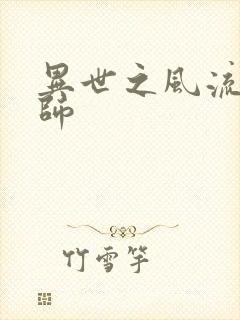 異世之風流
師
竹雪竿